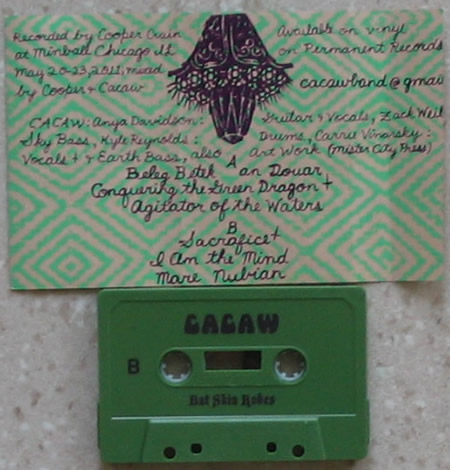 Recorded by Cooper Crain
at Minball Chicago Ill
May 20-23, 2011, mixed
by Cooper + Cacaw
Available on vinyl
on Permanent Records
cacawband@gmai
CACAW: Anya Davidson: Guitar + Vocals, Zack Weil
Sky Bass, Kyle Reynolds: Drums, Carrie Vinarsky:
Vocals † + Earth Bass, also Art Work (Mister City Press)
A
Beleg Betek an Douar
Conquering the Green Dragon †
Agitator of the Waters
B
Sacrafice †
I Am the Mind
Mare Nubian
CACAW
B
Bat Skin Robes